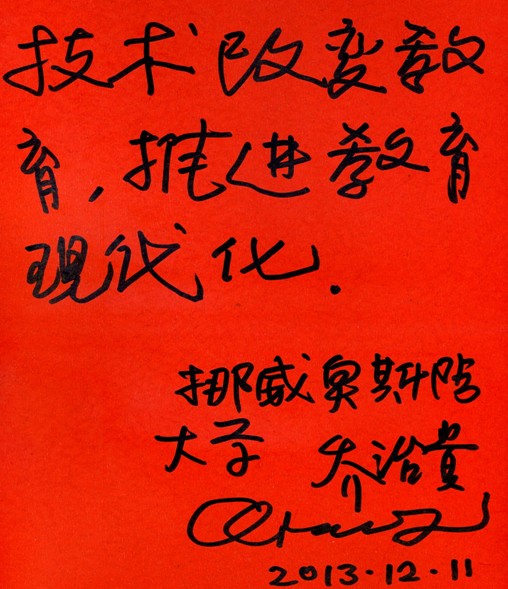 技术改变教
育，推进教育
現代化.
挪威奥斯陆
大学 乔治貴
2013·12·11